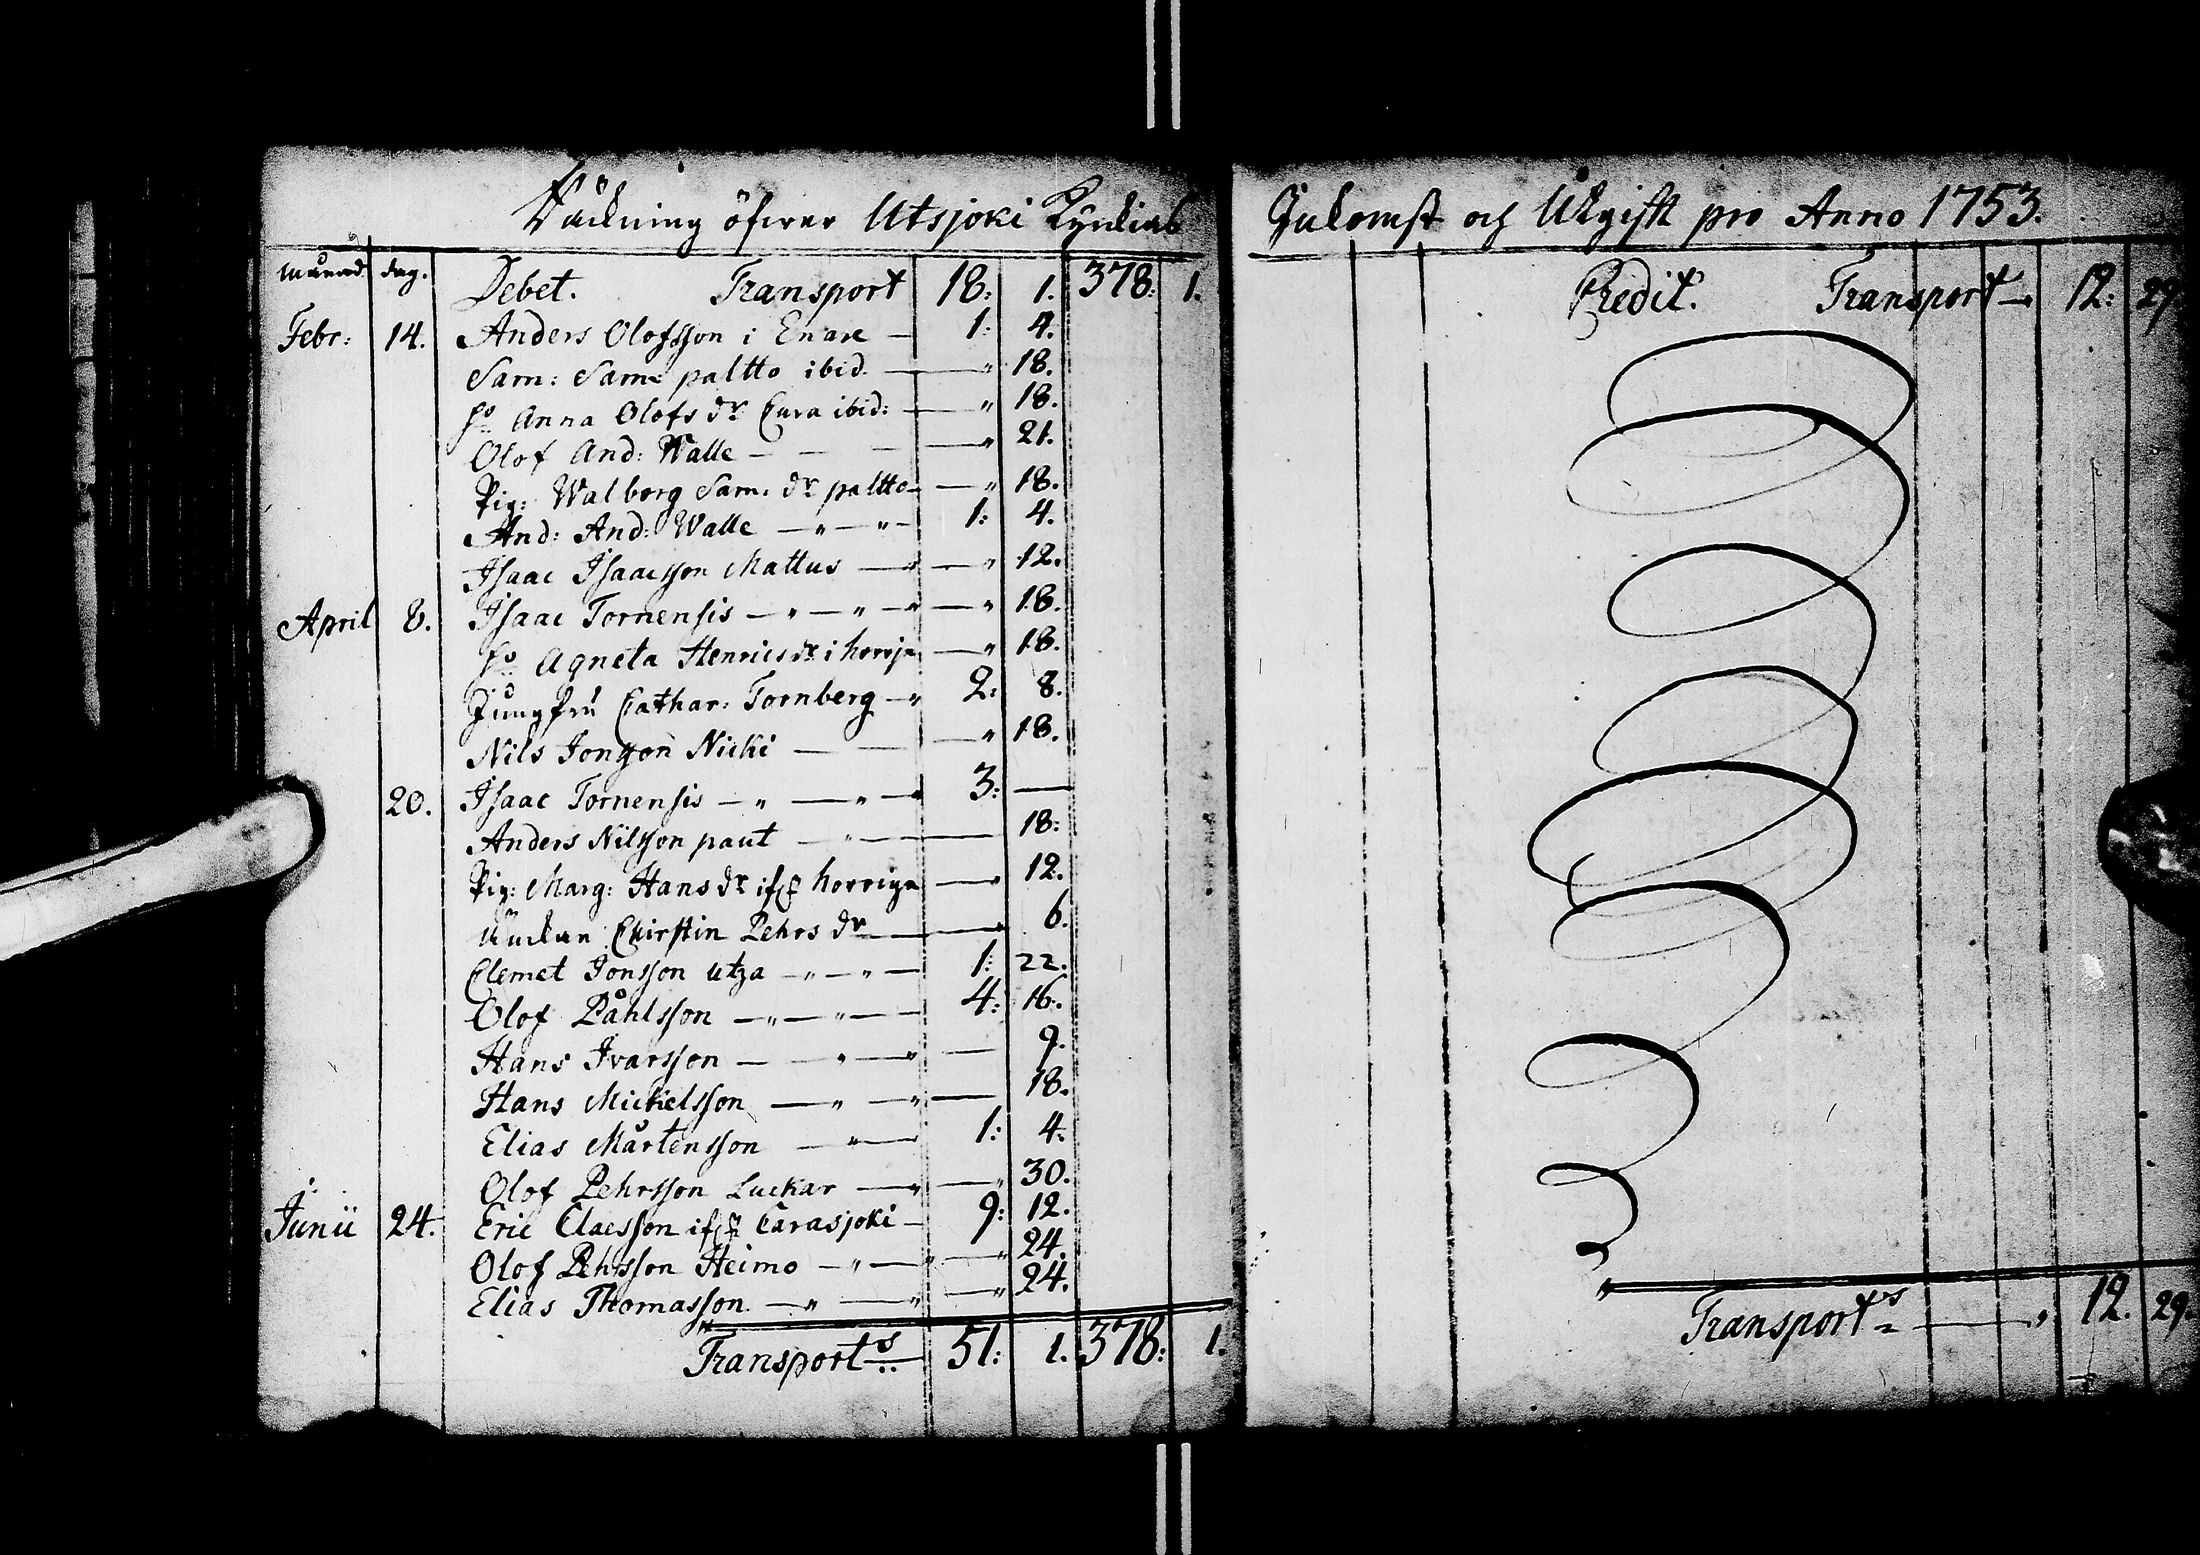 Räckning öfwer Utsjoki Kyrkias Inkomst och Utgifft pro Anno 1753.
Månad dag. Debet. Transport 18: 1. 378: 1.
Febr: 14. Anders Olofsson i Enare — 1: 4.
Sam: Sam: paltto ibid. — " 18.
Ho Anna Olofs dr Cura ibid: — " 18.
Olof And: Walle — — — " 21.
Pig: Walborg Sam: dr paltto — " 18.
And: And: Walle — " — " — 1: 4.
Isaac Isaacsson Mattus — " — " 12.
April 8. Isaac Tornensis — " — " — " — " 18.
Ho Agneta Henrics dr i horrja — " 18.
Jungfru Cathar: Tornberg — " 2: 8.
Nils Jonsson Nicki — — — " 18.
20. Isaac Tornensis — " — " — 3: —
Anders Nilsson paut — " — 18:
Pig: Marg: Hans dr horrign — 12.
Änckan Chirstin Pehrs dr — 6.
Clemet Jonsson utza — " — " — 1: 22.
Olof Påhlsson — " — " — 4: 16.
Hans Ivarsson — " — " — 9.
Hans Mickelsson — " — " — 18.
Elias Mårtensson — " — 1: 4.
Olof Pehrsson Luckar — " — " 30.
Junii 24. Eric Claesson Carasjoki — 9: 12.
Olof Pehrsson Heimo — " — " — " 24.
Elias Thomasson — " — " — " 24.
Transports — 51: 1. 378: 1.
Credit. Transport — 12: 29
Transports — " 12. 29.